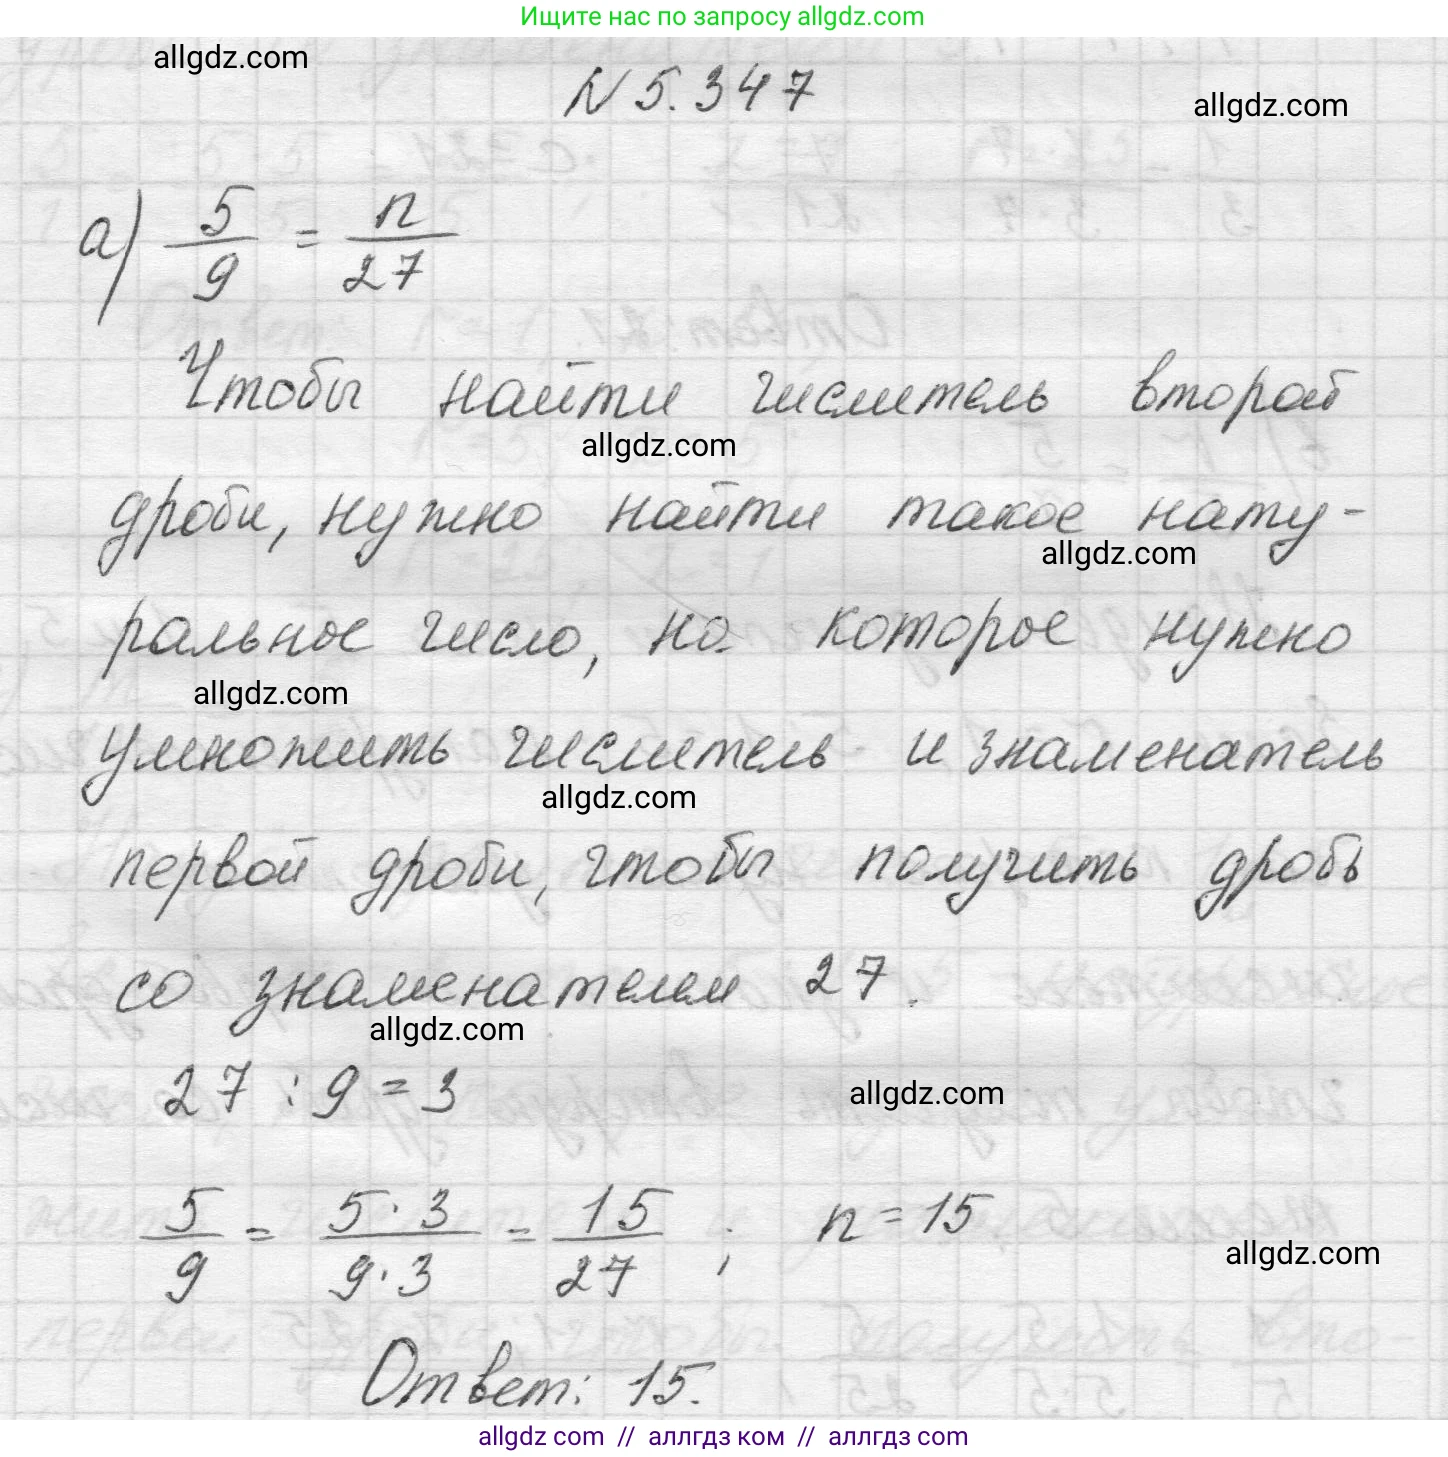 Ищите нас по запросу allgdz.com
allgdz.com
N 5.347
allgdz.com
а) 5/9 = n/27
Чтобы найти числитель второй
allgdz.com
дроби, нужно найти такое нату-
allgdz.com
ральное число, на которое нужно
allgdz.com
умножить числитель и знаменатель
allgdz.com
первой дроби, чтобы получить дробь
со знаменателем 27.
allgdz.com
27 : 9 = 3
allgdz.com
5/9 = 5·3/9·3 = 15/27 ; n = 15
allgdz.com
Ответ: 15.
allgdz com // аллгдз ком // аллгдз com